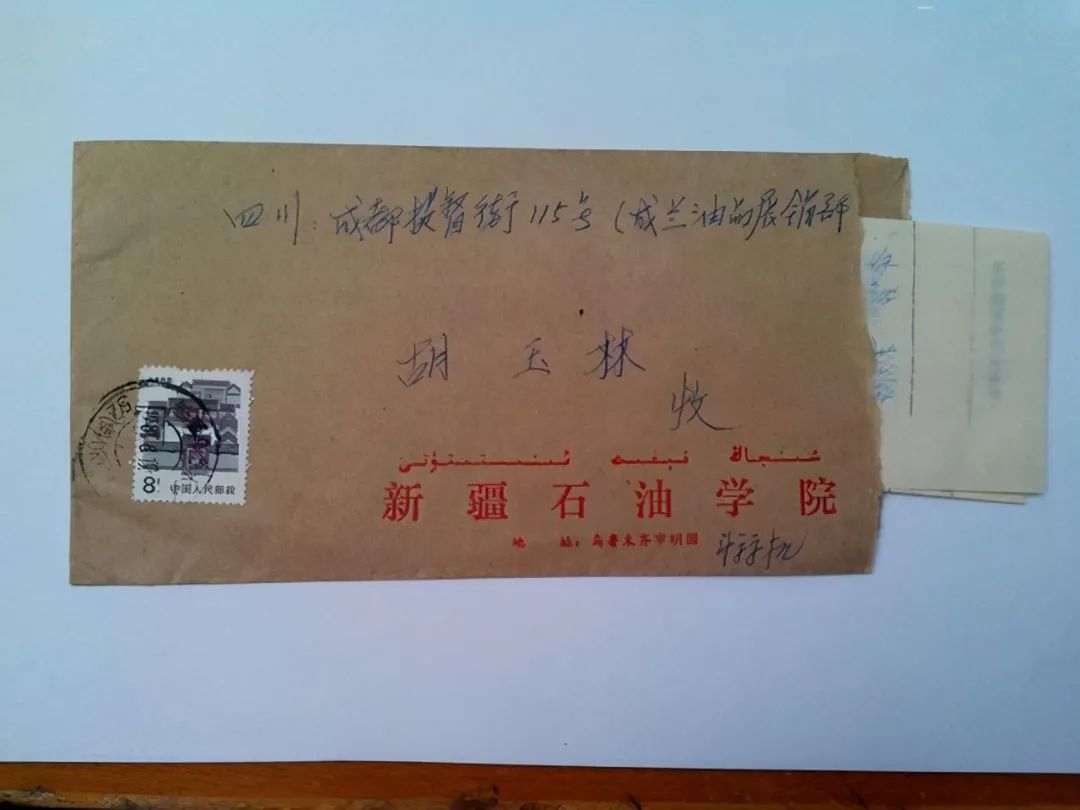 四川:成都提督街115号(成兰油品展销部
胡玉林
收
شىنجاڭ نېفىت ئىنستىتۇتى
新疆石油学院
地 址:乌鲁木齐市明园
8分 中国人民邮政